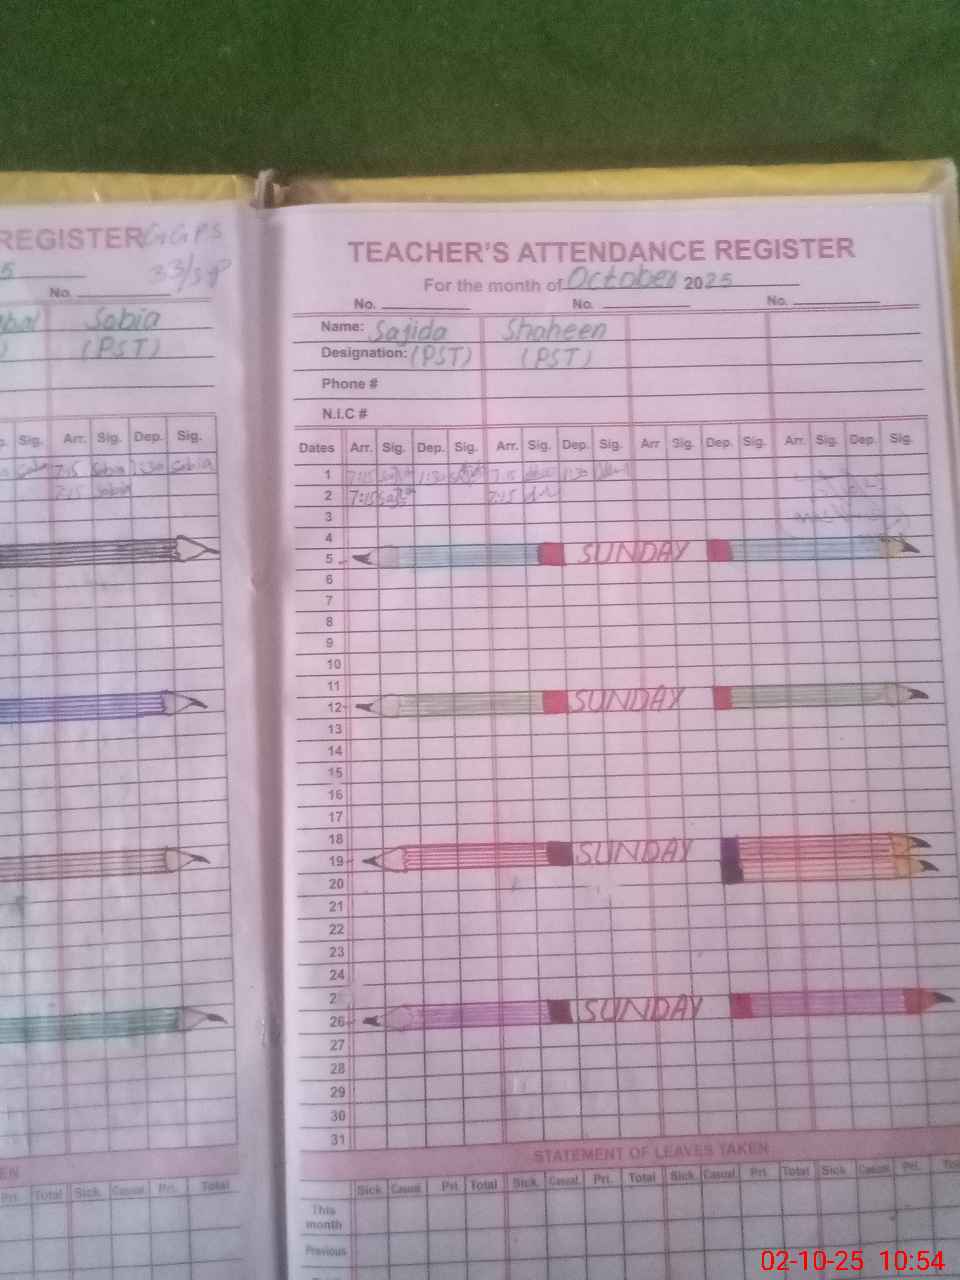 REGISTER GGPS
5 33/SP
No.
Sabia
(PST)
Sig. Arr. Sig. Dep. Sig.
7:15 Sabia 1:30 Sabia
7:15 Sabia
Pri. Total Sick. Casual Pri. Total
TEACHER'S ATTENDANCE REGISTER
For the month of October 2025
No. No. No.
Name: Sajida Shaheen
Designation: (PST) (PST)
Phone #
N.I.C #
Dates Arr. Sig. Dep. Sig. Arr. Sig. Dep. Sig. Arr Sig. Dep. Sig. Arr. Sig. Dep. Sig.
1 7:15 1:30 7:15 1:30
2 7:15 7:15
3
4
5 SUNDAY
6
7
8
9
10
11
12 SUNDAY
13
14
15
16
17
18
19 SUNDAY
20
21
22
23
24
2
26 SUNDAY
27
28
29
30
31
STATEMENT OF LEAVES TAKEN
Sick Casual Pri. Total Sick. Casual Pri. Total Sick. Casual Pri. Total Sick. Casual Pri.
This
month
Previous
02-10-25 10:54